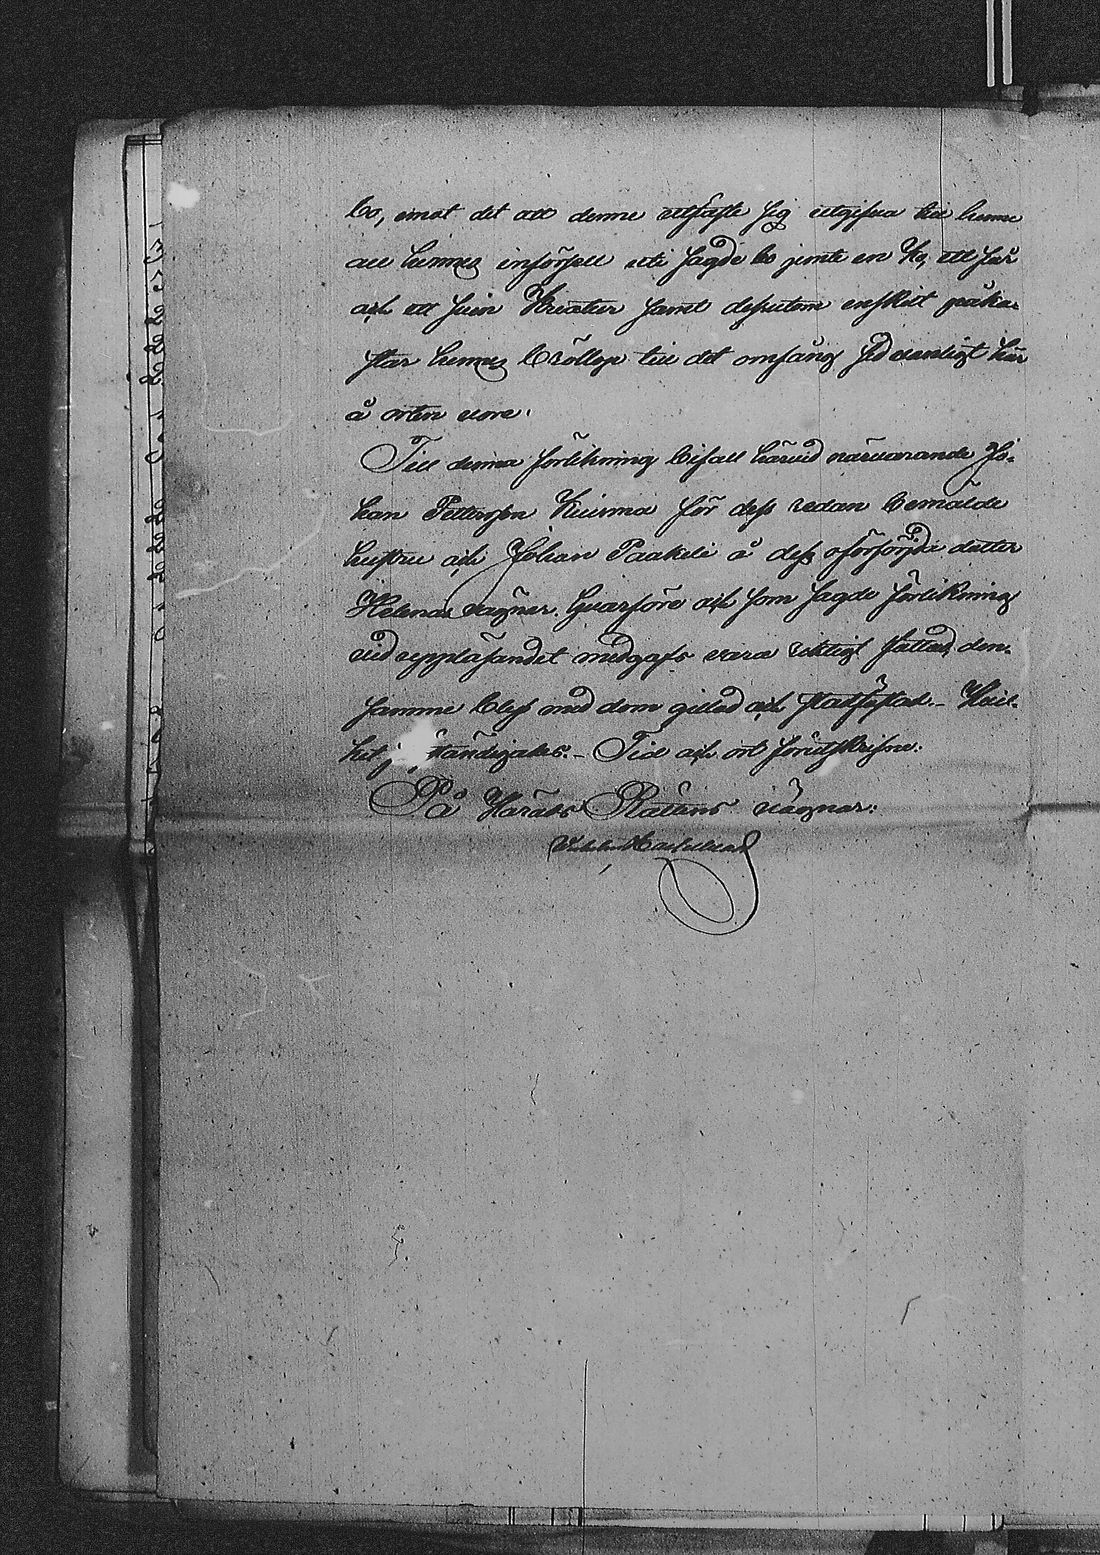 bo, emot det att denne utfäste sig utgifva till henne
all hennes införsell uti sagde bo jemte en Ko, ett får
och ett svin Kreatur samt dessutom enskilt påko-
star hennes Bröllop till det omfång sed vanligt här
å orten vore.
Till denna förlikning biföll härvid närvarande Jo-
han Pettersson Kuisma för dess redan bemälde
hustru och Johan Paakeli å dess oförsörjda dotter
Helenas vägnar. Hvarföre och som sagde förlikning
vid uppläsandet medgafs vara riktigt fattad, den-
samme blef med dom gillad och stadfästad. - Hvil-
ket                . - Tid och ort förutskrifne.
På Härads Rättens vägnar: